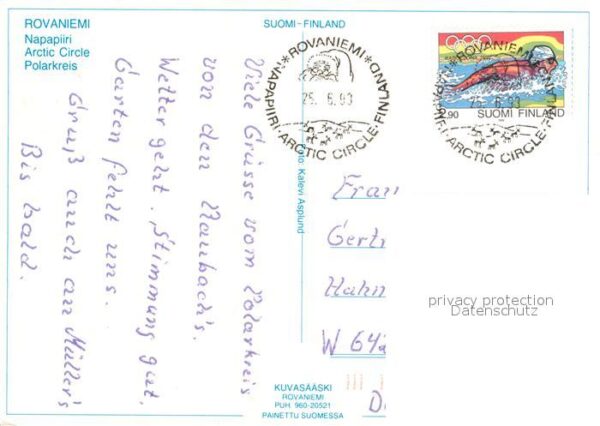 ROVANIEMI
Napapiiri
Arctic Circle
Polarkreis
SUOMI-FINLAND
Viele Grüsse vom Polarkreis
von den Naubach's.
Wetter geht. Stimmung gut.
Garten fehlt uns.
Gruß auch an Müller's
Bis bald.
Foto: Kalevi Asplund
*ROVANIEMI*
NAPAPIIRI-ARCTIC CIRCLE-FINLAND
25. 6. 93
2.90 SUOMI FINLAND
ROVANIEMI
NAPAPIIRI-ARCTIC CIRCLE
25. 6. 93
Gertr
Hahn
W 64
privacy protection
Datenschutz
KUVASÄÄSKI
ROVANIEMI
PUH. 960-20521
PAINETTU SUOMESSA